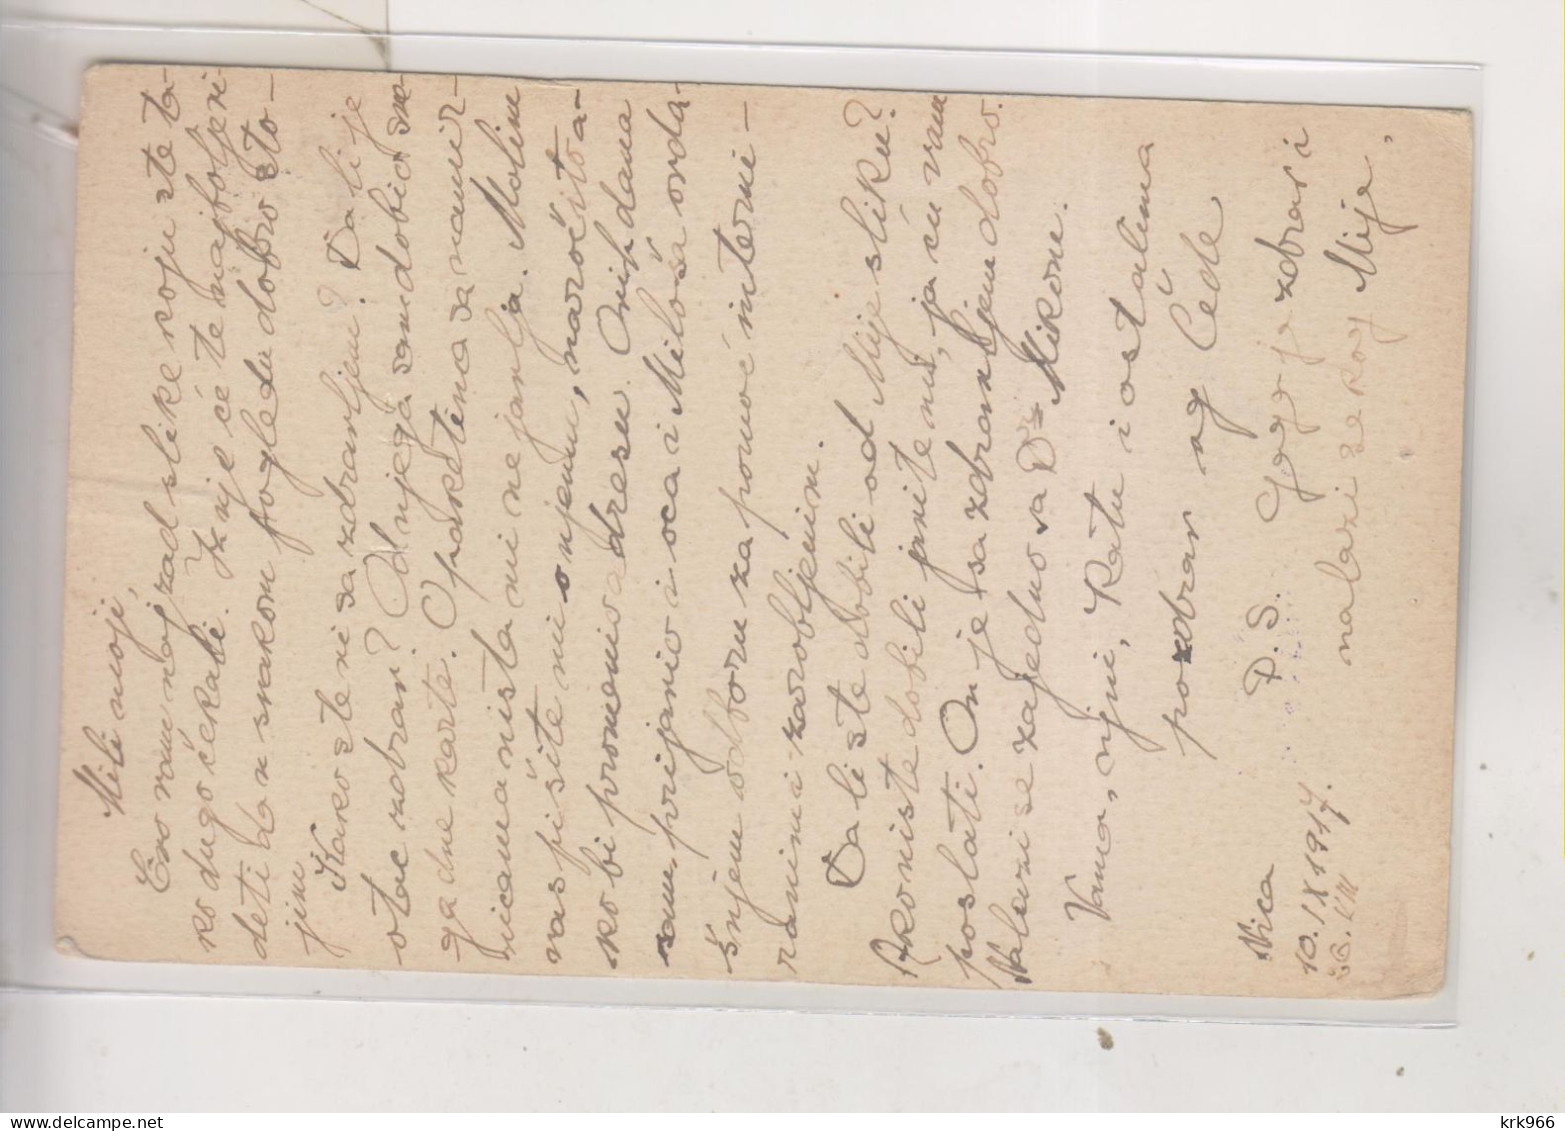 Mili moji,
Evo vam najzad slike koju ste ta-
ko dugo čekali. Iz nje ćete najbolje vi-
deti da u svakom pogledu dobro sto-
jim
Kako ste vi sa zdravljem? Da li je
otac zdrav? Od njega sam dobio sve-
ga dve karte. O paketima sa namir-
nicama ništa mi ne javlja. Molim
vas pišite mi o njemu, naročito a-
ko bi promenio adresu. Ovih dana
sam prijavio i oca i Miloša ovda-
šnjem odboru za pomoć interni-
ranim i zarobljenim.
Da li ste dobili od Mije sliku?
Ako niste dobili javite mi, ja ću vam
poslati. On je sa zdravljem dobro.
Nalazi se zajedno sa Dr Mikom.
Vama, njim, Katu i ostalima
pozdrav Čede
P.S. je zdrav i
nalazi se kod Mije.
Nica
10. IX 1917.
VIII
krk966